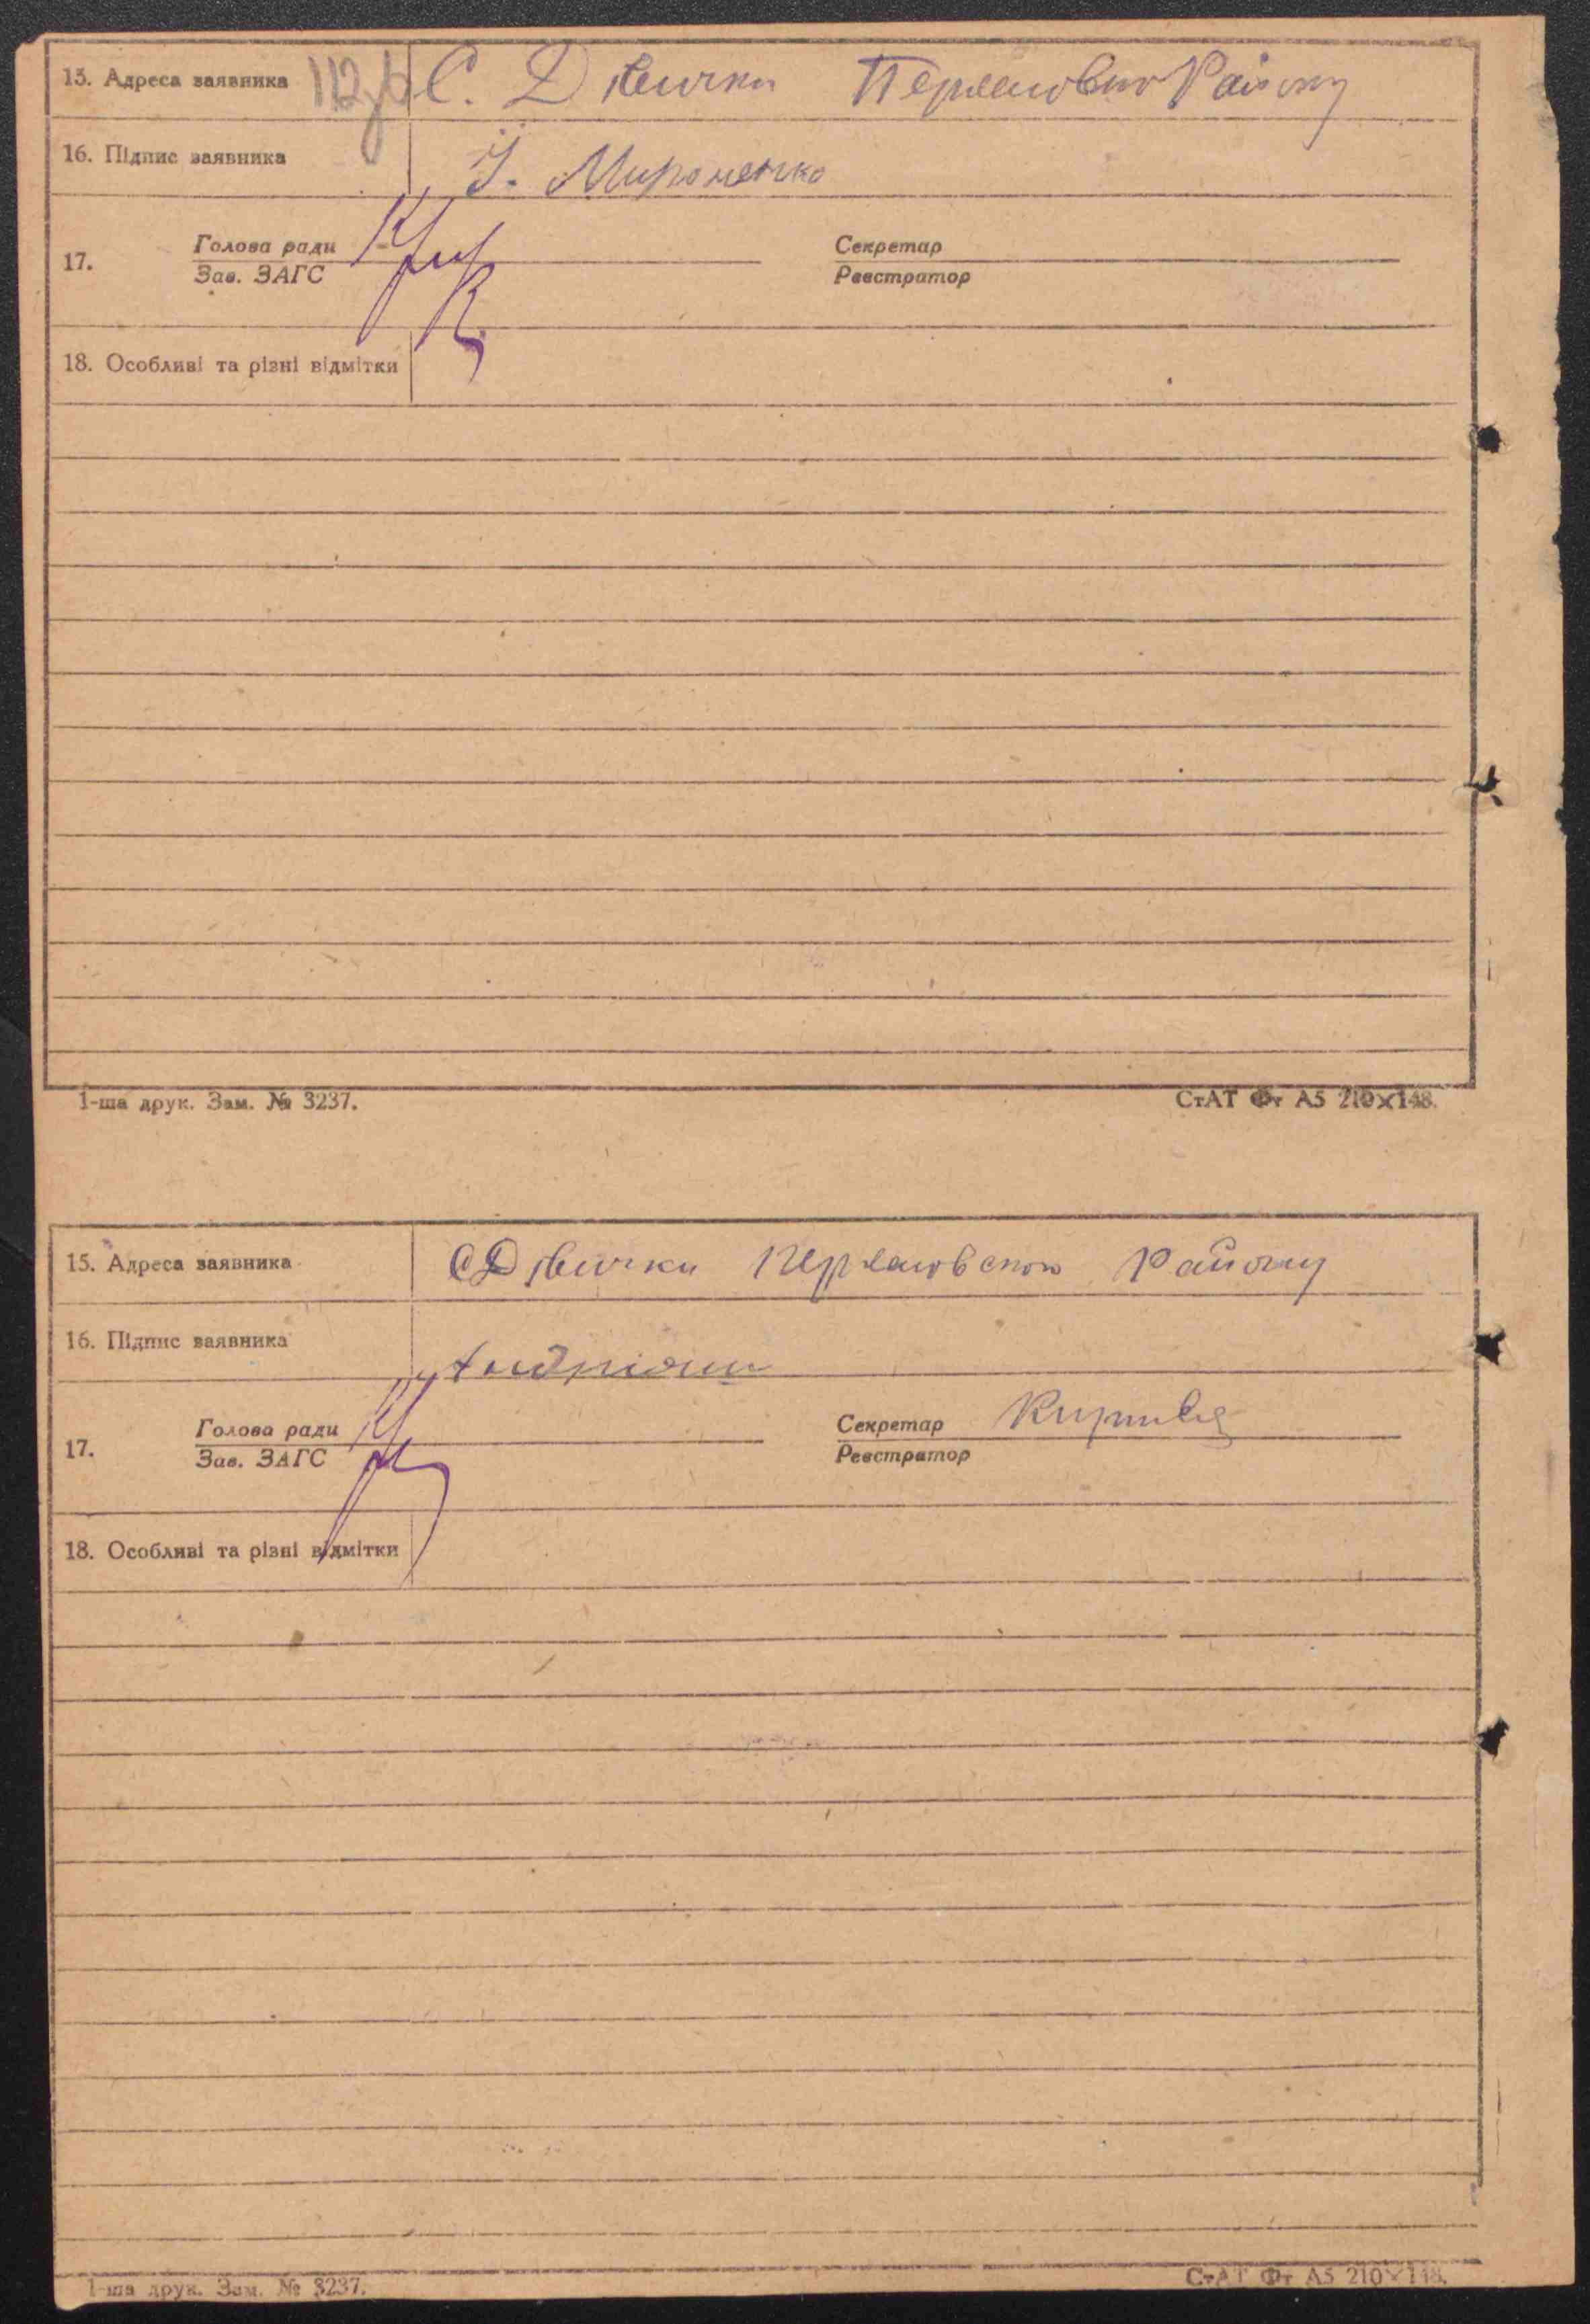 15. Адреса заявника 112зв С. Дівички Переяславсько Району
16. Підпис заявника У. Мироненко
17. Голова ради Секретар
Зав. ЗАГС Реєстратор
18. Особливі та різні відмітки
1-ша друк. Зам. № 3237. СтАТ Фт А5 210×148.
15. Адреса заявника С Дівички Району
16. Підпис заявника
17. Голова ради Секретар
Зав. ЗАГС Реєстратор
18. Особливі та різні відмітки
1-ша друк. Зам. № 3237. СтАТ Фт А5 210×148.